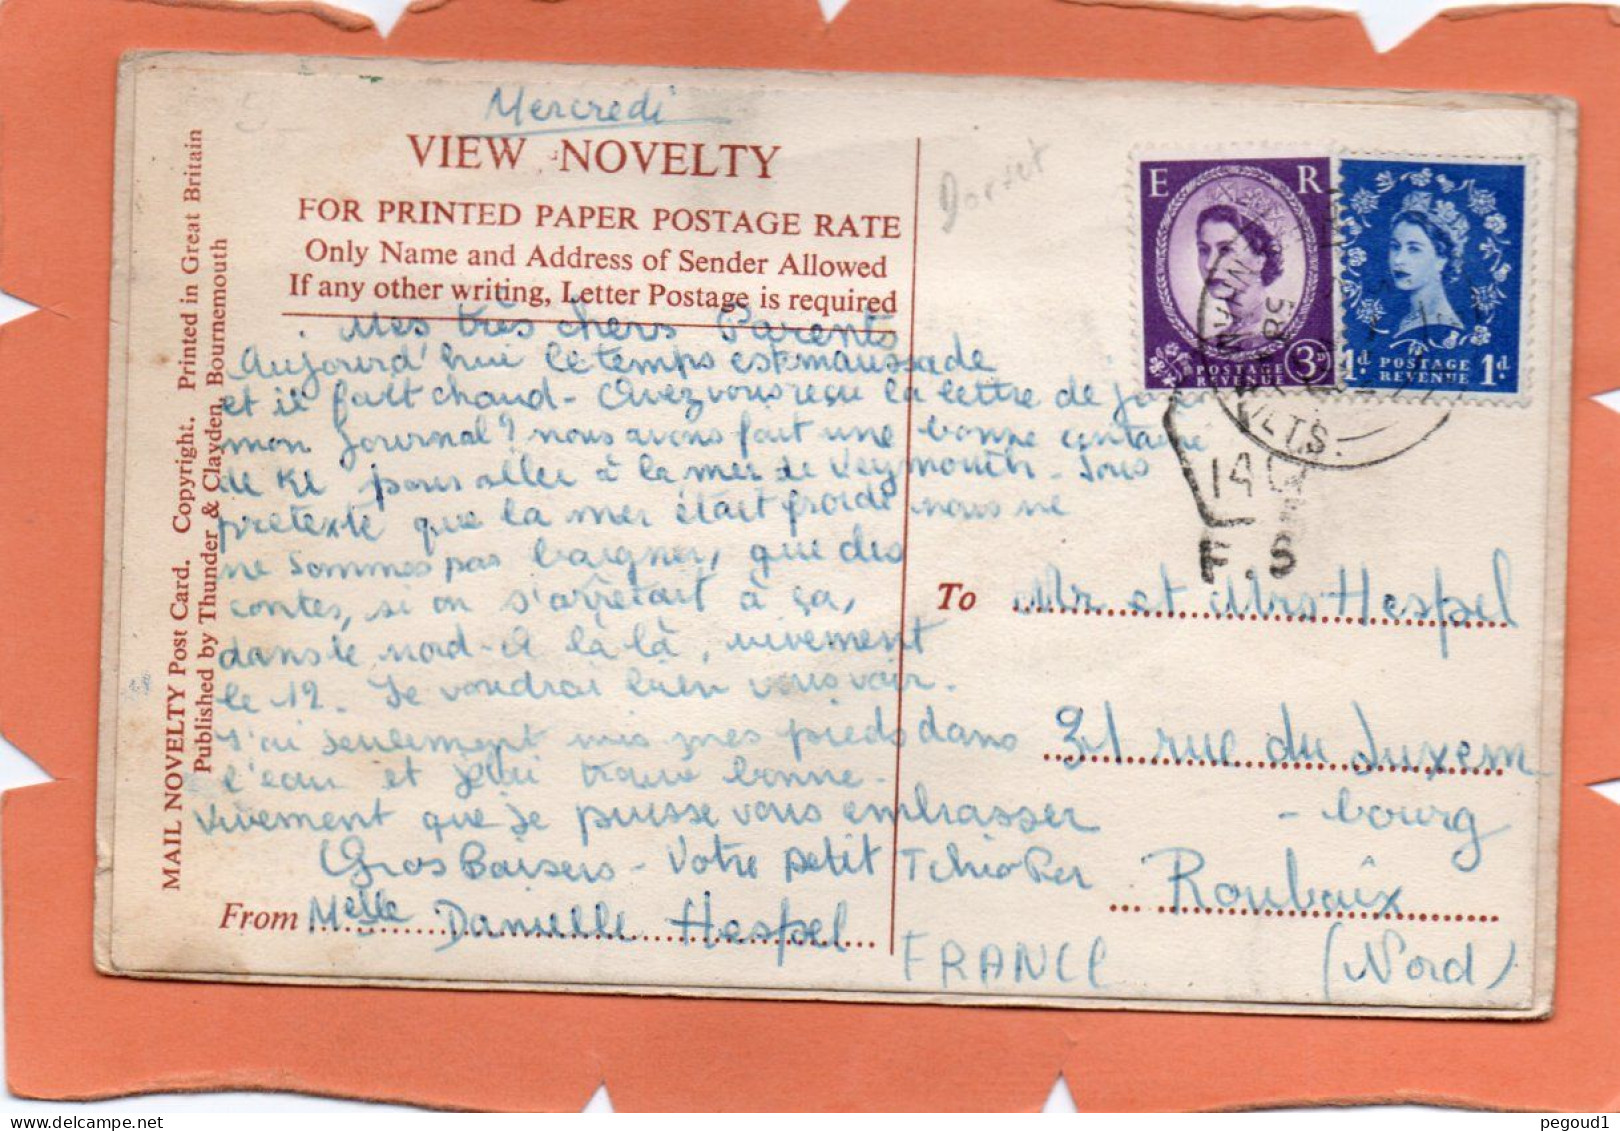 Mercredi
VIEW NOVELTY
FOR PRINTED PAPER POSTAGE RATE
Only Name and Address of Sender Allowed
If any other writing, Letter Postage is required
Mes très chers Parents
Aujourd'hui le temps est maussade
et il fait chaud - Avez vous reçu la lettre de
mon Journal? nous avons fait une bonne centaine
de Kl pour aller à la mer de Veymouth - Sous
pretexte que la mer était froide nous ne
ne sommes pas baigner, que des
contes, si on s'arrêtait à ça,
dans le nord - A la là, vivement
le 12. Je voudrai bien vous voir.
J'ai seulement mis mes pieds dans
l'eau et je l'ai trouvé bonne.
vivement que je puisse vous embrasser
Gros Baisers - Votre petit
From Melle Danielle Hespel
MAIL NOVELTY Post Card. Copyright. Printed in Great Britain
Published by Thunder & Clayden, Bournemouth
Dorset
E R
POSTAGE
REVENUE
3D
1d. POSTAGE
REVENUE 1d.
VLTS.
F.S
To Mr et Mrs Hespel
31 rue du Luxem
- bourg
Roubaix
FRANCE (Nord)
pegoud1